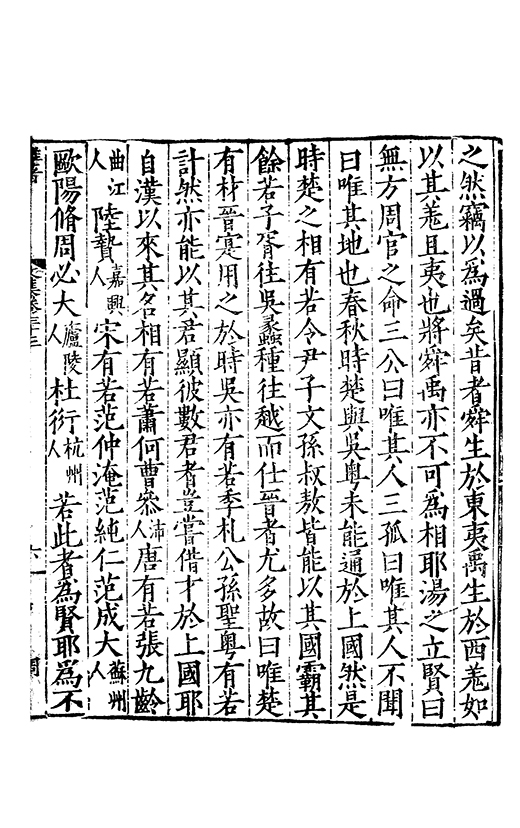 之然竊以為過矣昔者舜生於東夷禹生於西羗如
以其羗且夷也將舜禹亦不可為相耶湯之立賢曰
無方周官之命三公曰唯其人三孤曰唯其人不聞
曰唯其地也春秋時楚與吳粵未能通於上國然是
時楚之相有若令尹子文孫叔敖皆能以其國霸其
餘若子胥往吳蠡種往越而仕晉者尤多故曰唯楚
有材晉寔用之於時吳亦有若季札公孫聖粵有若
計然亦能以其君顯彼數君者豈嘗借才於上國耶
自漢以來其名相有若蕭何曹參沛人唐有若張九齡
曲江人陸贄嘉興人宋有若范仲淹范純仁范成大蘇州人
歐陽脩周必大廬陵人杜衍杭州人若此者為賢耶為不